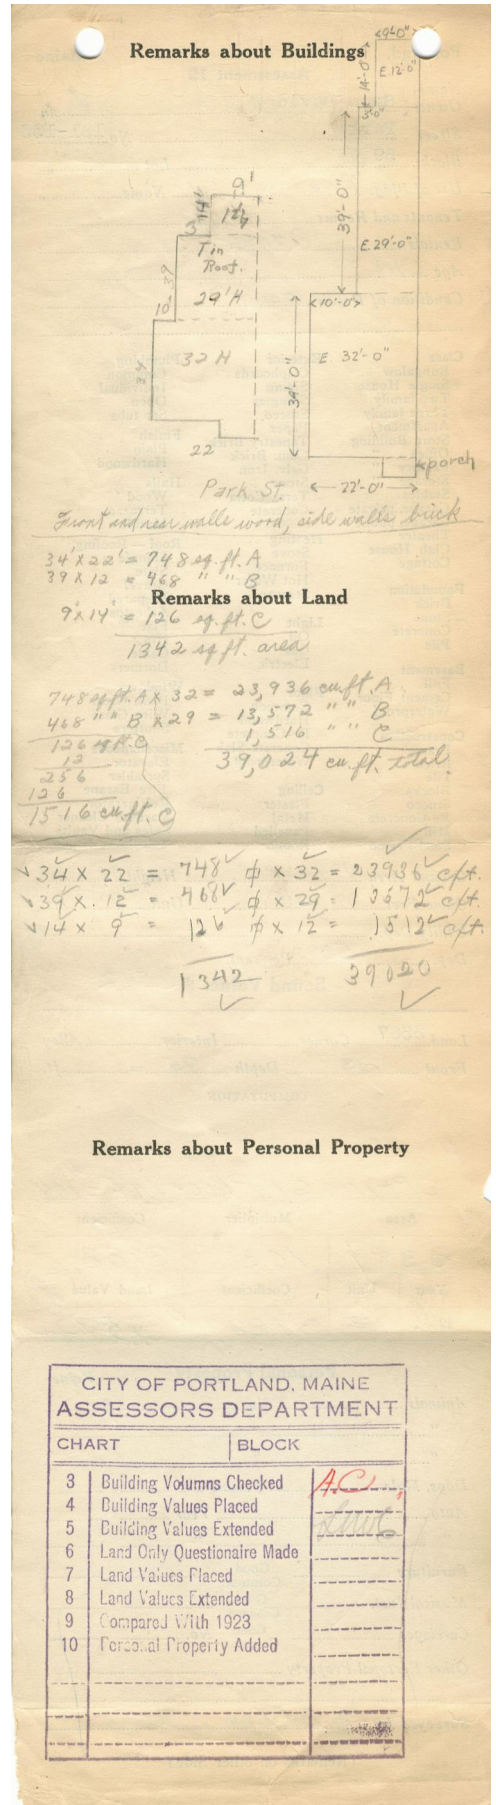 Remarks about Buildings
9'-0"
E.12'-0"
14'-0"
3'-0"
39'-0"
E.29'-0"
<10'-0">
E 32'-0"
34'-0"
porch
22'-0"
9'
14'
12
3
Tin
Roof.
39
29'H
10
32 H
34
22
Park St.
Front and rear walls wood, side walls brick
34' x 22' = 748 sq. ft. A
39 x 12 = 468 " " B
Remarks about Land
9' x 14' = 126 sq. ft. C
1342 sq ft. area
748 sq ft. A x 32 = 23,936 cu. ft. A
468 " " B x 29 = 13,572 " " B
126 sq ft. C 1,516 " " C
12 39,024 cu. ft. total
256
126
1516 cu. ft. C
34 x 22 = 748 ⌀ x 32 = 23936 cft.
39 x 12 = 468 ⌀ x 29 = 13572 cft.
14 x 9 = 126 ⌀ x 12 = 1512 cft.
1342 39020
Remarks about Personal Property
CITY OF PORTLAND, MAINE
ASSESSORS DEPARTMENT
CHART BLOCK
3 Building Volumns Checked A.C.
4 Building Values Placed
5 Building Values Extended
6 Land Only Questionaire Made
7 Land Values Placed
8 Land Values Extended
9 Compared With 1923
10 Personal Property Added